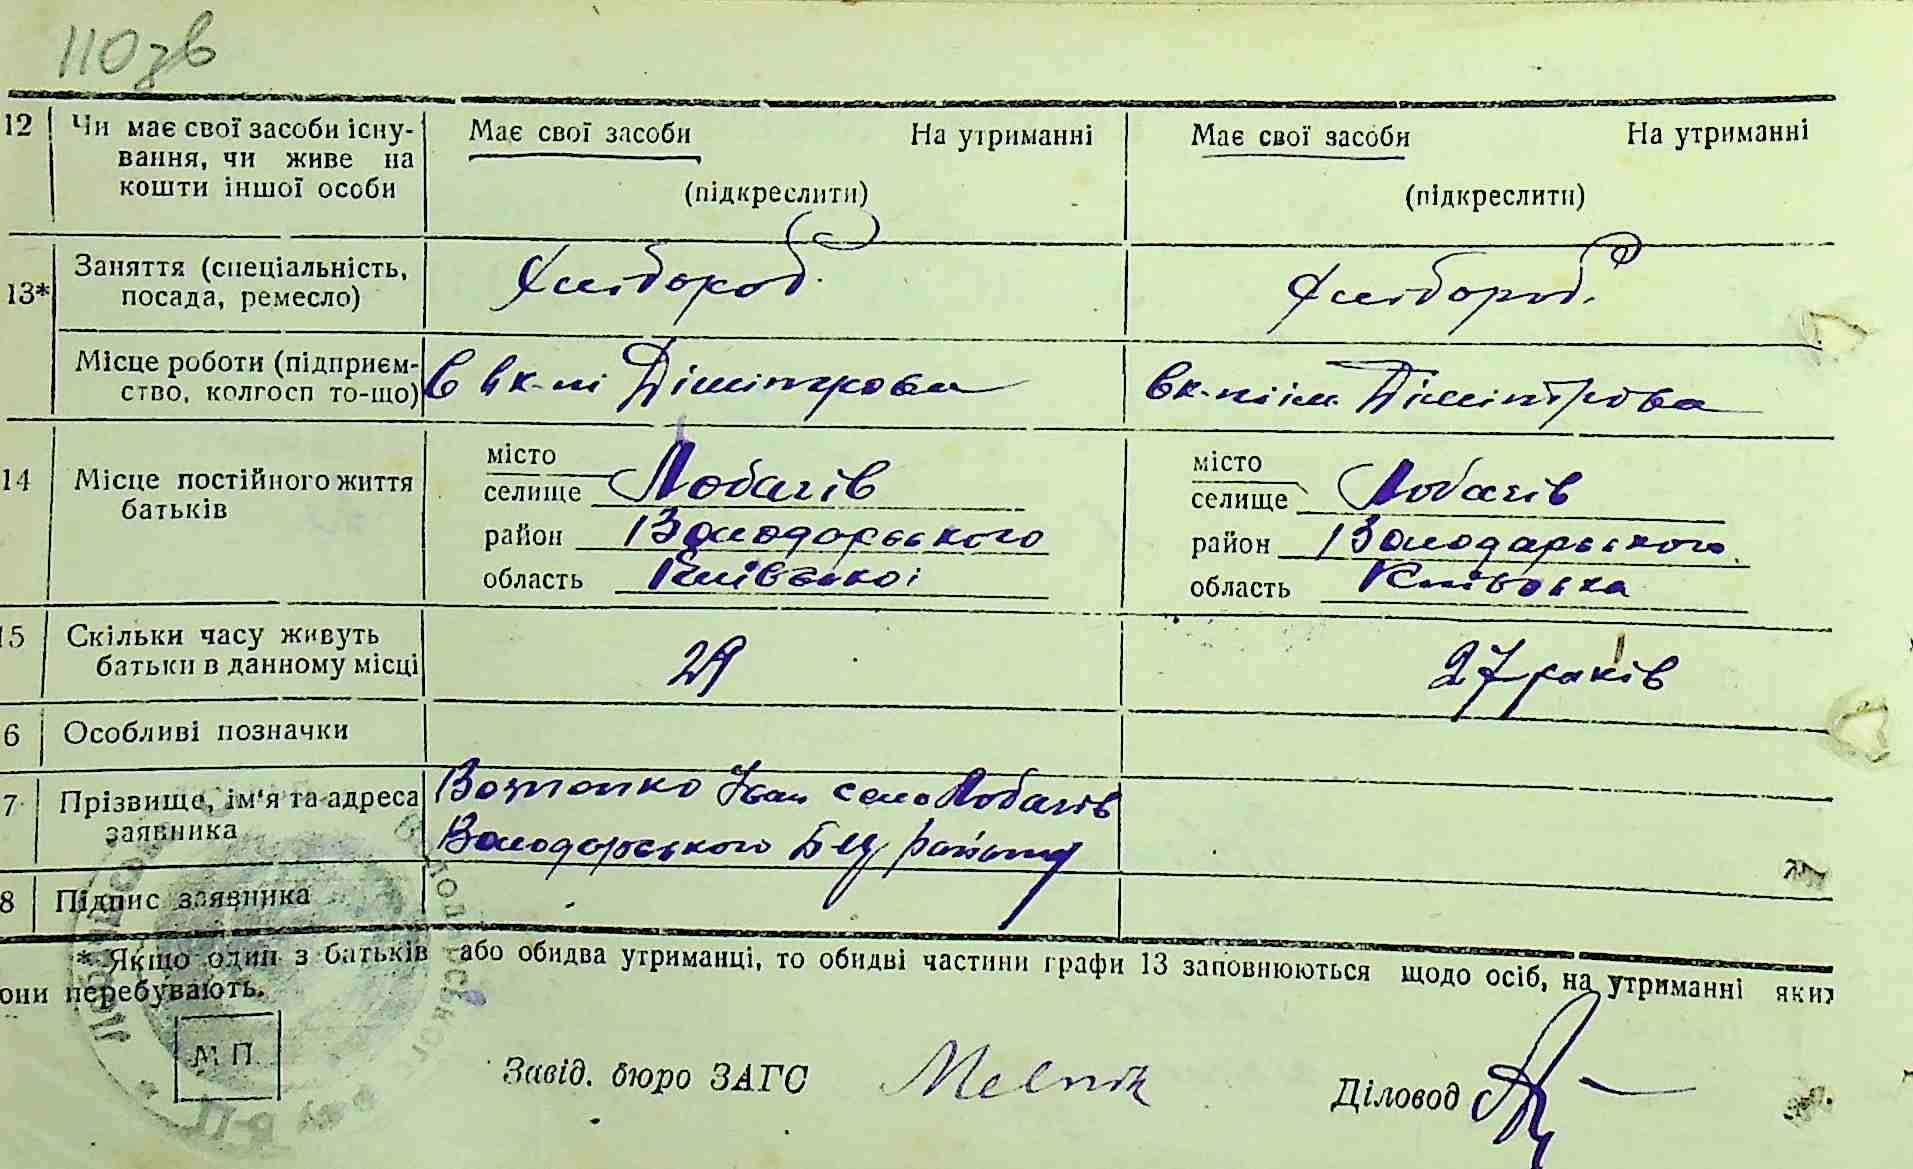 110 зв
12 Чи має свої засоби існу-
вання, чи живе на
кошти іншої особи
Має свої засоби На утриманні
(підкреслити)
Має свої засоби На утриманні
(підкреслити)
13* Заняття (спеціальність,
посада, ремесло)
Хлібороб.
Хлібороб.
Місце роботи (підприєм-
ство, колгосп то-що)
в к-пі Дімітрова
в к-пі ім. Дімітрова
14 Місце постійного життя
батьків
місто
селище Лобачів
район Володарського
область Київської
місто
селище Лобачів
район Володарського
область Київська
15 Скільки часу живуть
батьки в данному місці
29
27 років
6 Особливі позначки
7 Прізвище, ім'я та адреса
заявника
Іван село Лобачів
Володарського району
8 Підпис заявника
* Якщо один з батьків або обидва утриманці, то обидві частини графи 13 заповнюються щодо осіб, на утриманні яких
они перебувають.
М П.
Завід. бюро ЗАГС Melnik
Діловод